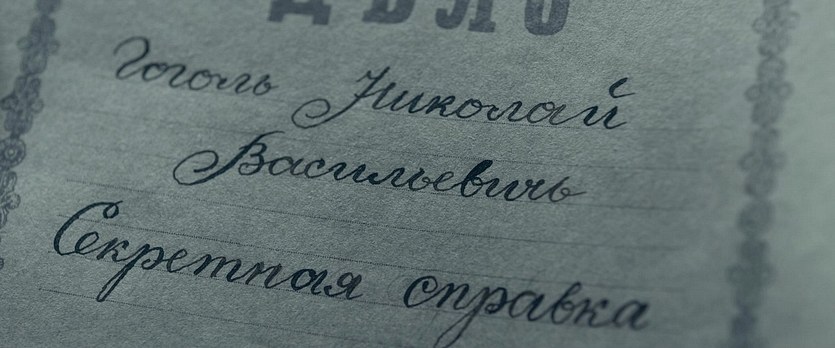 ДѢЛО
Гоголь Николай
Васильевичь
Секретная справка